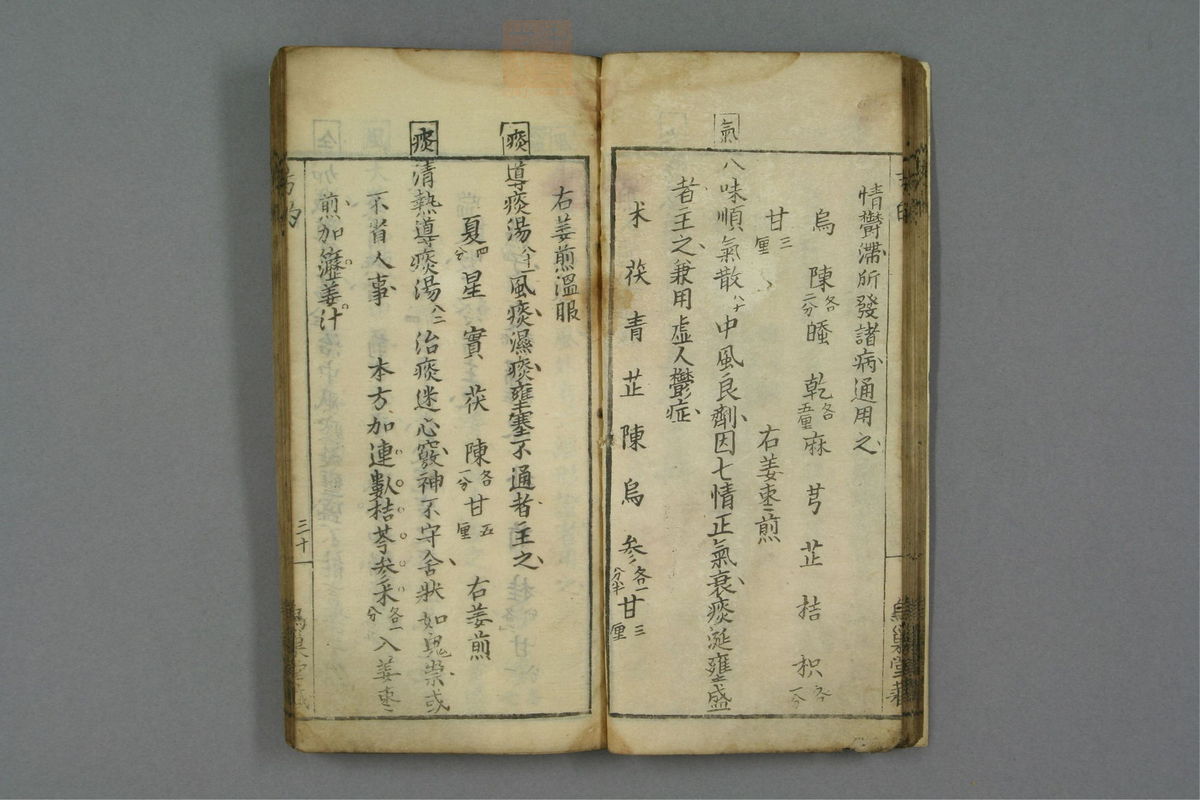 情欝滯所發諸病通用之
烏 陳各二分 蚕 乾各五厘 麻 芎 芷 桔 枳各一分
甘三厘 右姜枣煎
氣 八味順氣散八十 中風良劑因七情正氣衰痰涎壅盛
者主之兼用虚人欝症
术 茯 青 芷 陳 烏 参各一分半 甘三厘
右姜煎温服
痰 導痰湯八十一 風痰濕痰壅塞不通者主之
夏四分 星 實 茯 陳各一分 甘五厘 右姜煎
痰 清熱導痰湯八二 治痰迷心竅神不守舍狀如鬼祟或
不省人事 本方加連 桔芩参术各一分 入姜枣
煎加瀝姜汁
三十